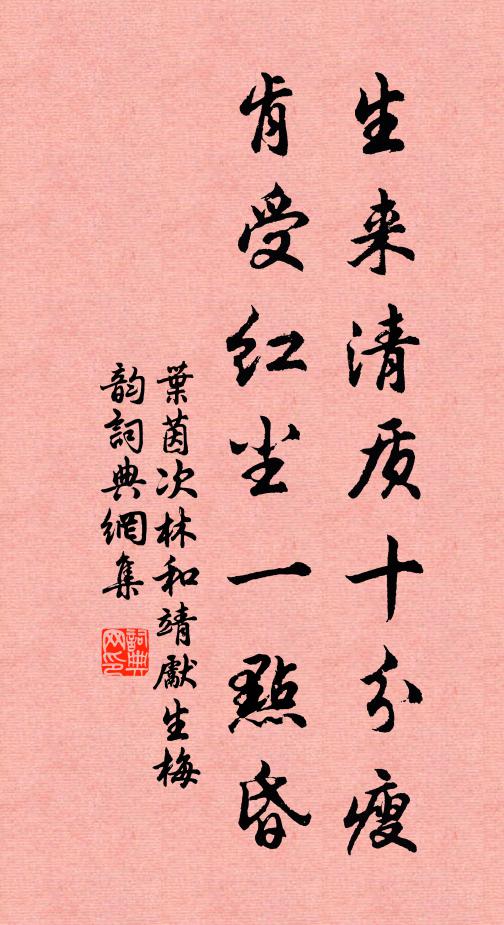 生来清质十分瘦
肯受红尘一點昏
葉茵次林和靖獻生梅
韵詞典網集
詞典
网印